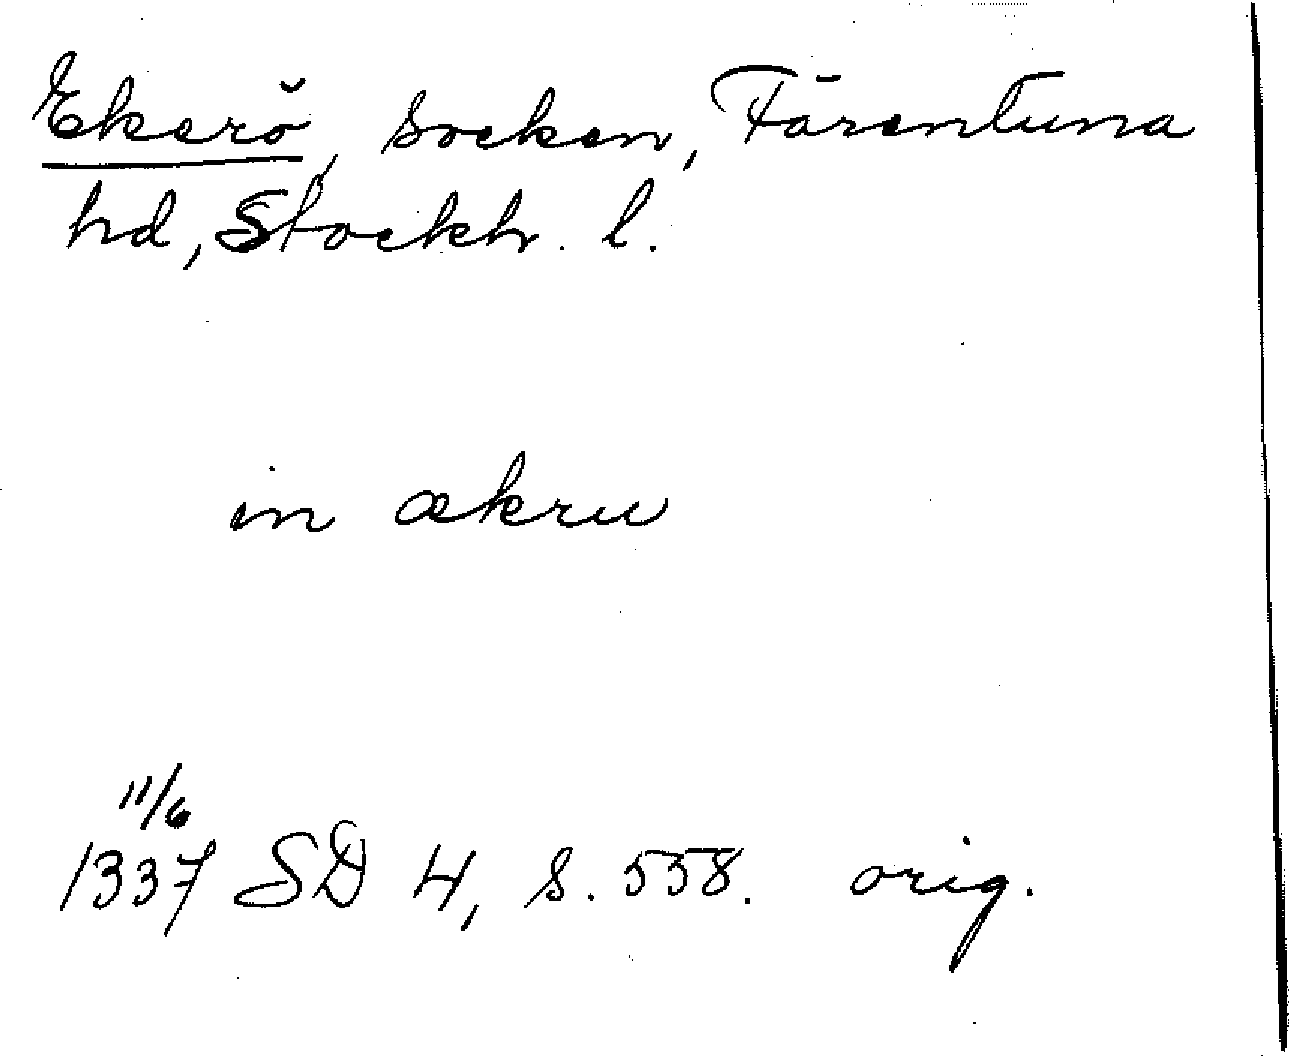 Ekerö, socken, Färentuna
hd, Stockh. l.
in ækru
11/6
1337 SD 4, s. 558. orig.